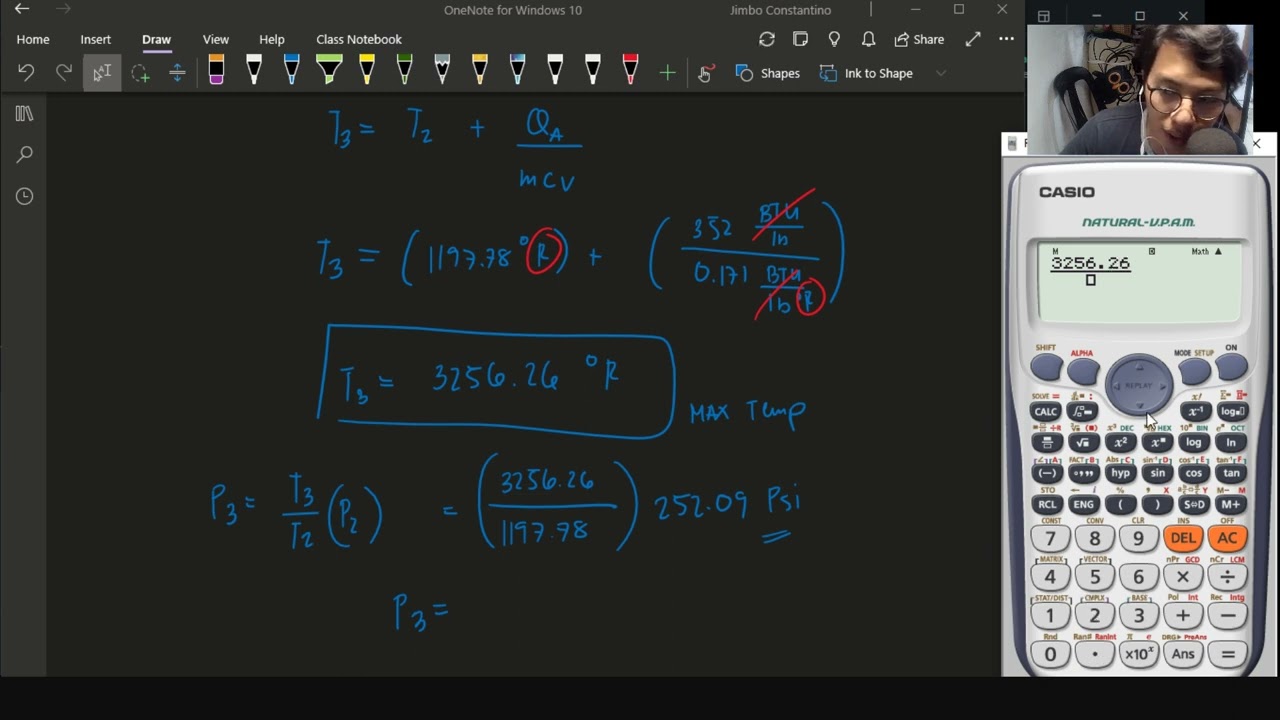 OneNote for Windows 10
Jimbo Constantino
Home Insert Draw View Help Class Notebook
Share
Shapes Ink to Shape
T3 = T2 + QA
mCV
T3 = (1197.78 °R) + (352 BTU/lb
0.171 BTU/lb °R)
T3 = 3256.26 °R
MAX Temp
P3 = T3/T2 (P2) = (3256.26/1197.78) 252.09 Psi
P3 =
CASIO
NATURAL-V.P.A.M.
M Math ▲
3256.26
SHIFT ALPHA MODE SETUP ON
REPLAY
SOLVE = x!
CALC x⁻¹ log
x³ DEC HEX 10ˣ BIN OCT
√ x² log ln
FACT [B] Abs [C] sin⁻¹ [D] cos⁻¹ [E] tan⁻¹ [F]
(−) °''' hyp sin cos tan
STO M− M
RCL ENG ( ) S⇔D M+
CONST CONV CLR INS OFF
7 8 9 DEL AC
[MATRIX] [VECTOR] nPr GCD nCr LCM
4 5 6 × ÷
[STAT/DIST] [CMPLX] [BASE] Pol Int Rec Intg
1 2 3 + −
Rnd Ran# RanInt π e DRG▶ PreAns
0 . ×10ˣ Ans =